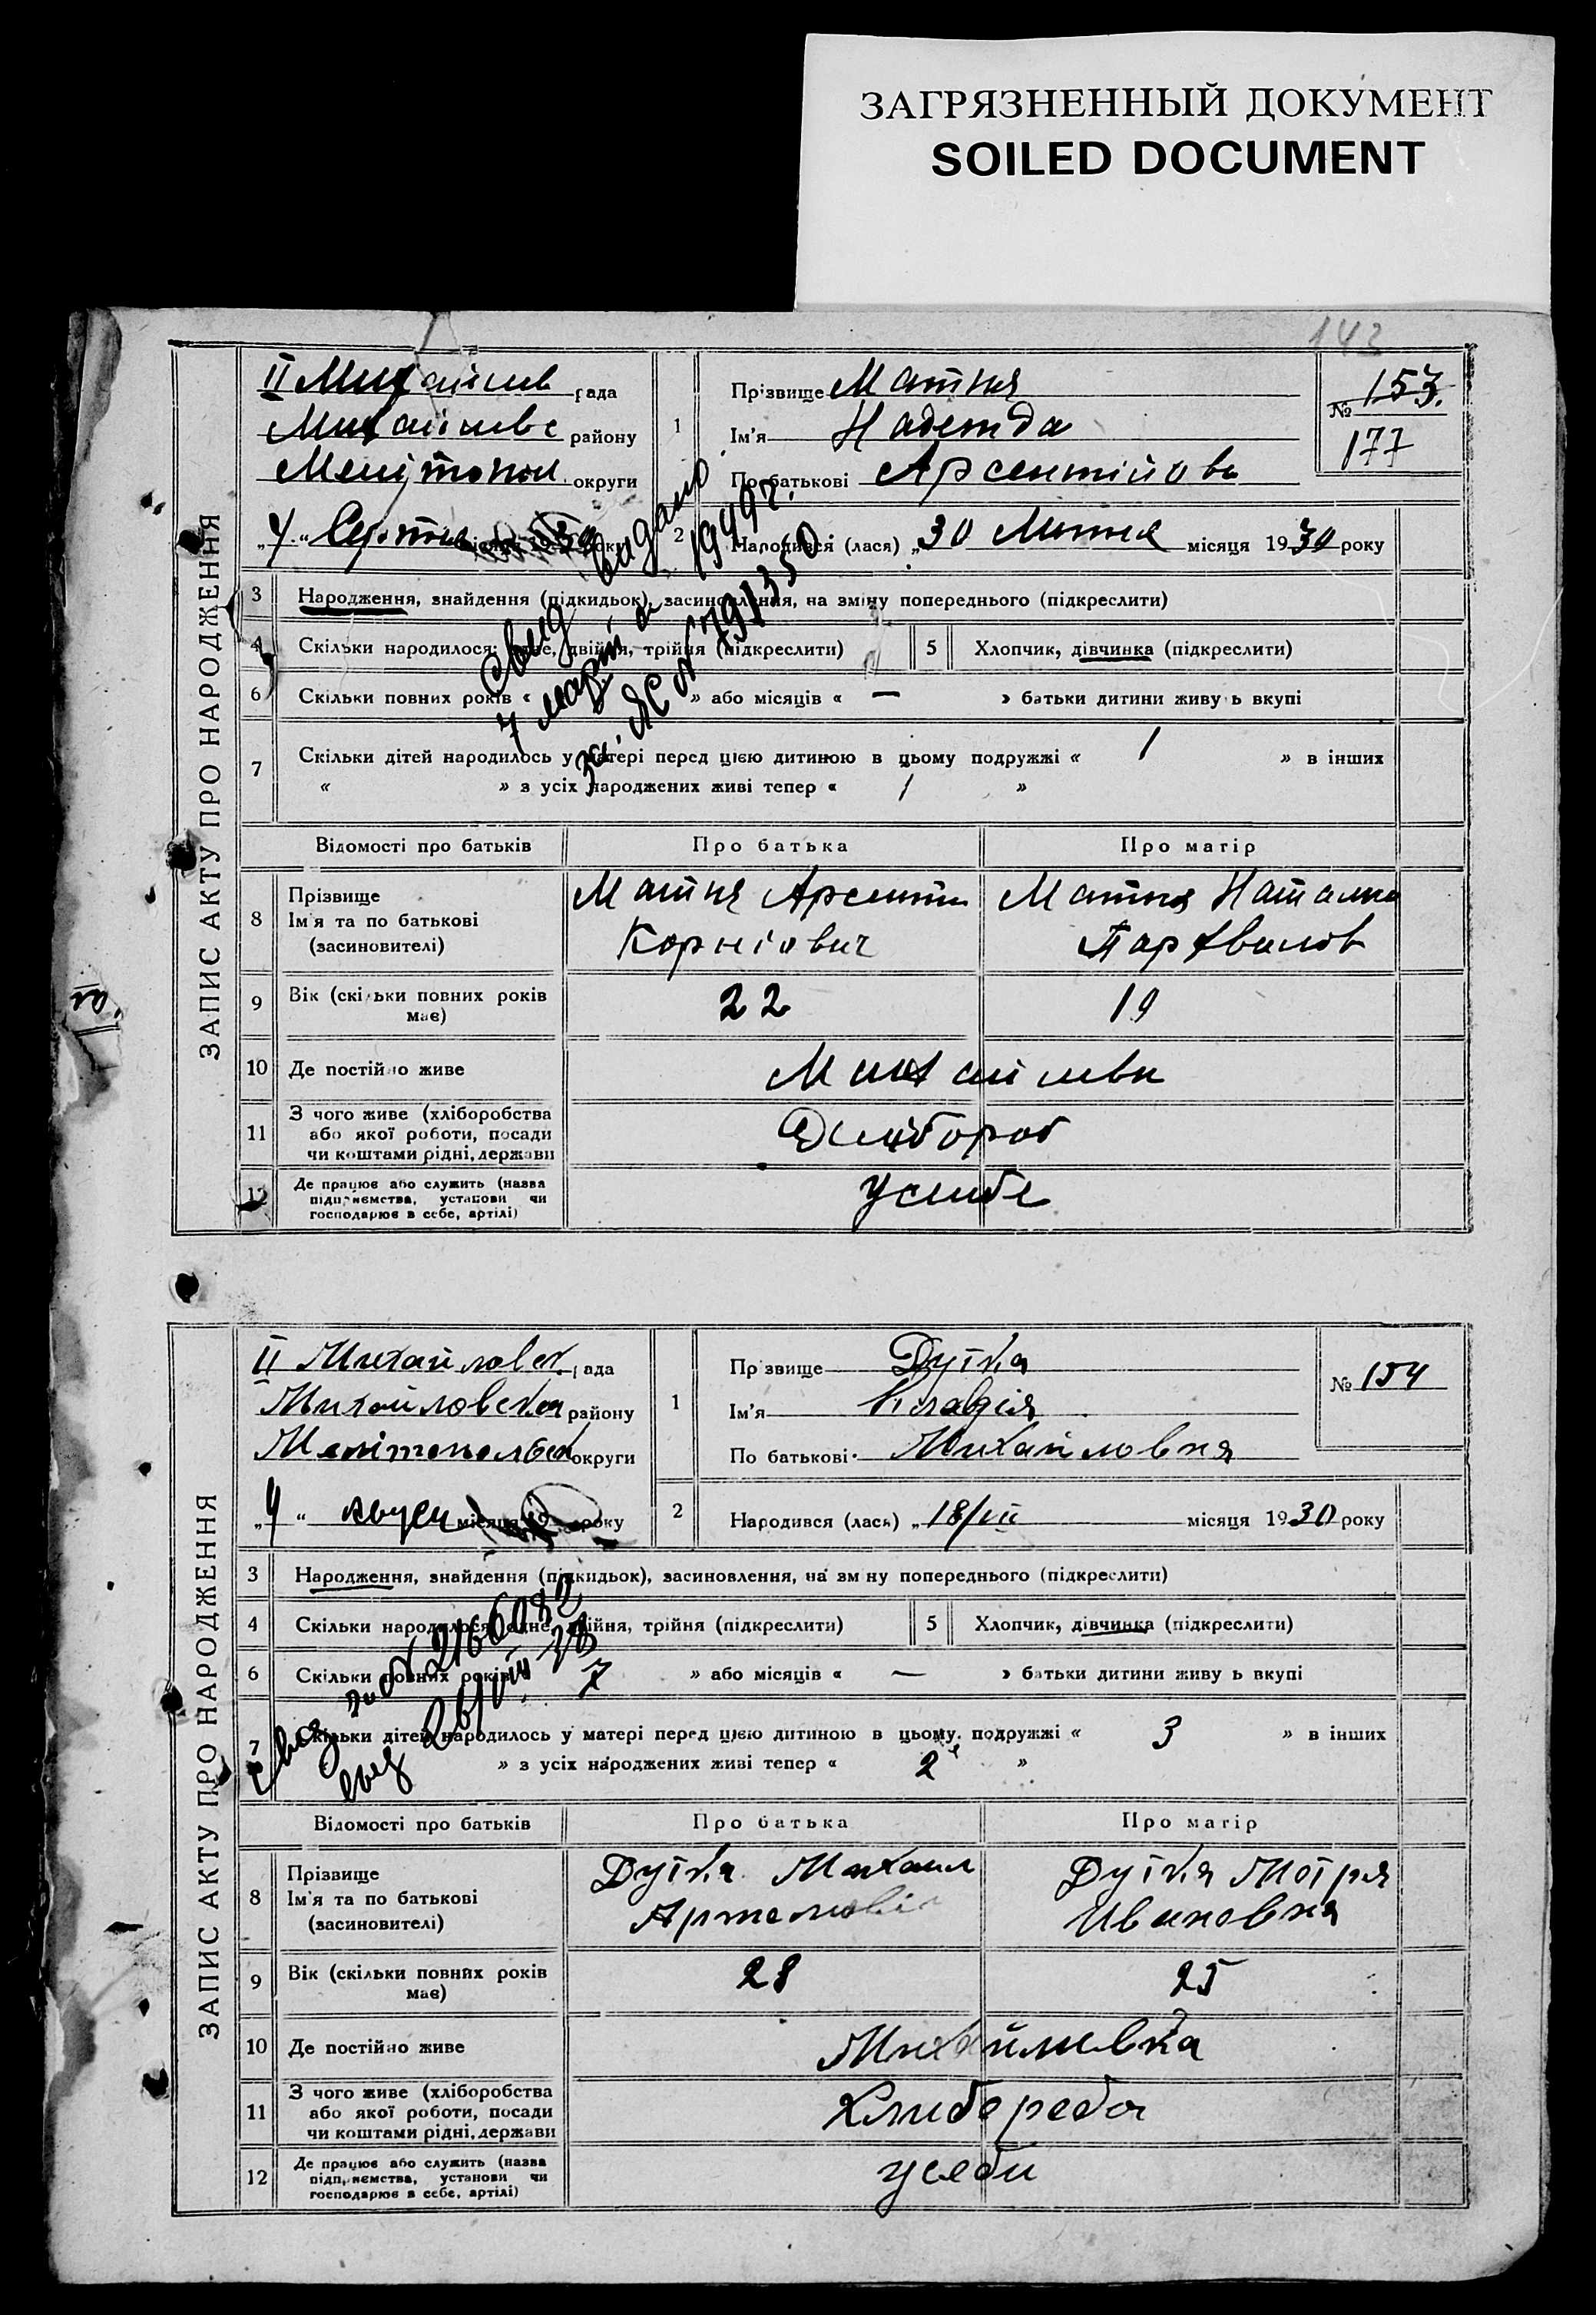 ЗАГРЯЗНЕННЫЙ ДОКУМЕНТ
SOILED DOCUMENT
143
ЗАПИС АКТУ ПРО НАРОДЖЕННЯ
II Михайлів рада
Михайлівс району
Мелітопол. округи
„4“ Серпня місяця 1930 року
1
Прізвище Матня
Ім'я Надежда
По батькові Арсентійовн
№ 153.
177
2 Народився (лася) „30 Липня місяця 1930 року
Свид видано
7 марта 1949 г.
за. ЯС №
3 Народження, знайдення (підкидьок), засиновлення, на зміну попереднього (підкреслити)
4 Скільки народилося: одне, двійня, трійня (підкреслити) 5 Хлопчик, дівчинка (підкреслити)
6 Скільки повних років « » або місяців « — » батьки дитини живуть вкупі
7 Скільки дітей народилось у матері перед цією дитиною в цьому подружжі « 1 » в інших
« » з усіх народжених живі тепер « 1 »
Відомості про батьків Про батька Про матір
8 Прізвище
Ім'я та по батькові
(засиновителі)
Матня Арсентій
Корніович
Матня Наталка
9 Вік (скільки повних років
має)
22 19
10 Де постійно живе Михайлівка
11 З чого живе (хліборобства
або якої роботи, посади
чи коштами рідні, держави
12 Де працює або служить (назва
підприємства, установи чи
господарює в себе, артілі)
усибе
ЗАПИС АКТУ ПРО НАРОДЖЕННЯ
II Михайловск рада
Михайловская району
округи
„4“ август місяця 19 року
1
Прізвище Дутка
Ім'я Клавдія
По батькові Михайловня
№ 154
2 Народився (лась) „18/VII місяця 1930 року
3 Народження, знайдення (підкидьок), засиновлення, на зміну попереднього (підкреслити)
4 Скільки народилося: одне, двійня, трійня (підкреслити) 5 Хлопчик, дівчинка (підкреслити)
6 Скільки повних років « 7 » або місяців « — » батьки дитини живуть вкупі
7 Скільки дітей народилось у матері перед цією дитиною в цьому подружжі « 3 » в інших
» з усіх народжених живі тепер « 2 »
Відомості про батьків Про батька Про матір
8 Прізвище
Ім'я та по батькові
(засиновителі)
Дутка Михаил
Дутка Мотря
Ивановня
9 Вік (скільки повних років
має)
28 25
10 Де постійно живе Михайливка
11 З чого живе (хліборобства
або якої роботи, посади
чи коштами рідні, держави
Хлибороба
12 Де працює або служить (назва
підприємства, установи чи
господарює в себе, артілі)
усеби